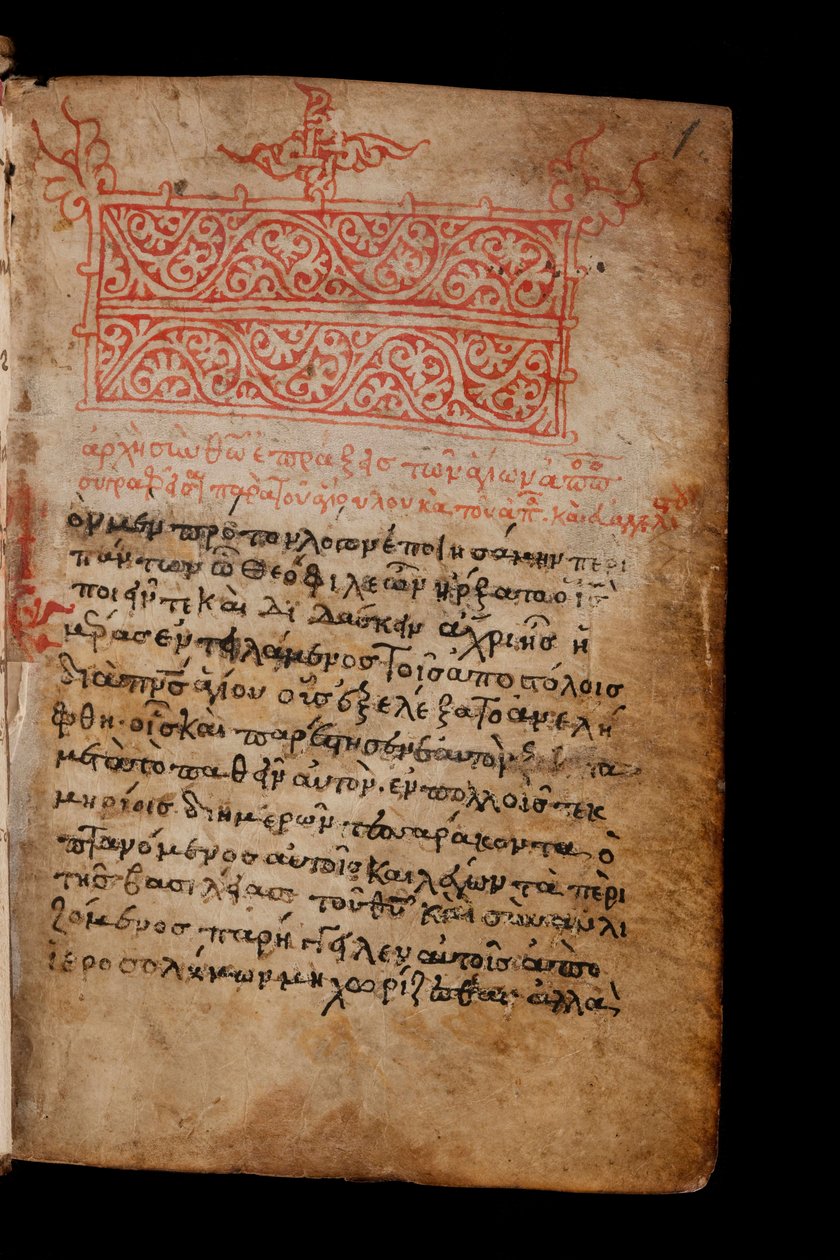 1
ἀρχὴ σὺν θῶ ἑ πραξης τῶν ἁγίων ἀπ
παρὰ τοῦ ἁγίο υ λουκὰ του
ὸν μὲν πρὸτον λογον ἐποιησάμην περι
πάντων ὦ Θεόφιλε ὧν ἠρξατο ὁ ἰς
ποιην τε Κὰι διδασκην ἀχρι ἧς ἡ
μέρας ἐντηλάμενος Τοῖς αποστόλοις
διὰ πνς ἁγίου οὓς ἐξελέξαΤο ἀνελή
φθη· οἷς κὰι παρέστησεν ἑαυτὸν ζ τα
μετὰ τὸ παθῆν αυτὸν· ἐν πολλοῖς τεκ
μηρίοις δι ημερῶν τεσσαράκοντα ὀ
πΤανόμενος αυτοῖς Και λέγων τὰ πὲρι
τῆς βασιλήας τοῦ θῦ κὰι συναυλι
ζόμενος παρήγγηλεν αυτοῖς ἀπο
ἱεροσολύμων μὴ χωρίζεσθαι ἀλλὰ